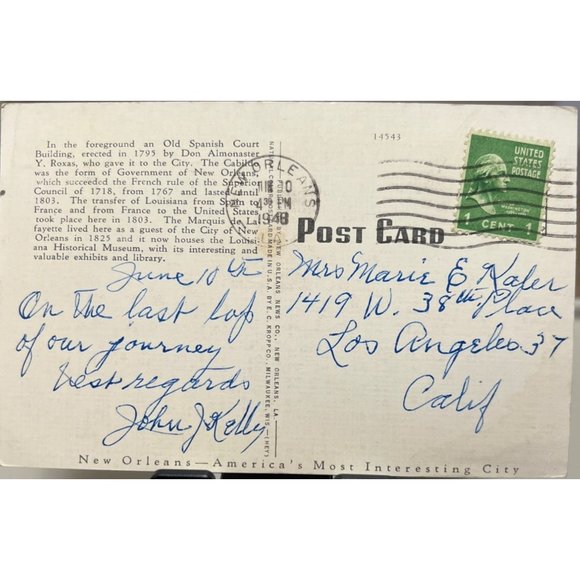 In the foreground an Old Spanish Court
Building, erected in 1795 by Don Almonaster
Y. Roxas, who gave it to the City. The Cabildo
was the form of Government of New Orleans,
which succeeded the French rule of the Superior
Council of 1718, from 1767 and lasted until
1803. The transfer of Louisiana from Spain to
France and from France to the United States
took place here in 1803. The Marquis de La-
fayette lived here as a guest of the City of New
Orleans in 1825 and it now houses the Louisi-
ana Historical Museum, with its interesting and
valuable exhibits and library.
June 10th
On the last lap
of our journey
best regards
John J Kelly
NEW ORLEANS NEWS CO., NEW ORLEANS, LA.
MADE IN U.S.A. BY E. C. KROPP CO., MILWAUKEE, WIS.—(HEY)
NEW ORLEANS
PM
1948
14543
UNITED
STATES
POSTAGE
1 CENT 1
POST CARD
Mrs Marie E. Kaler
1419 W. 38th Place
Los Angeles 37
Calif
New Orleans—America's Most Interesting City